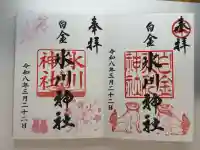 奉拝
白金
氷川神社
氷川神社
令和八年三月二十二日
奉拝
白金
氷川神社
令和八年三月二十二日